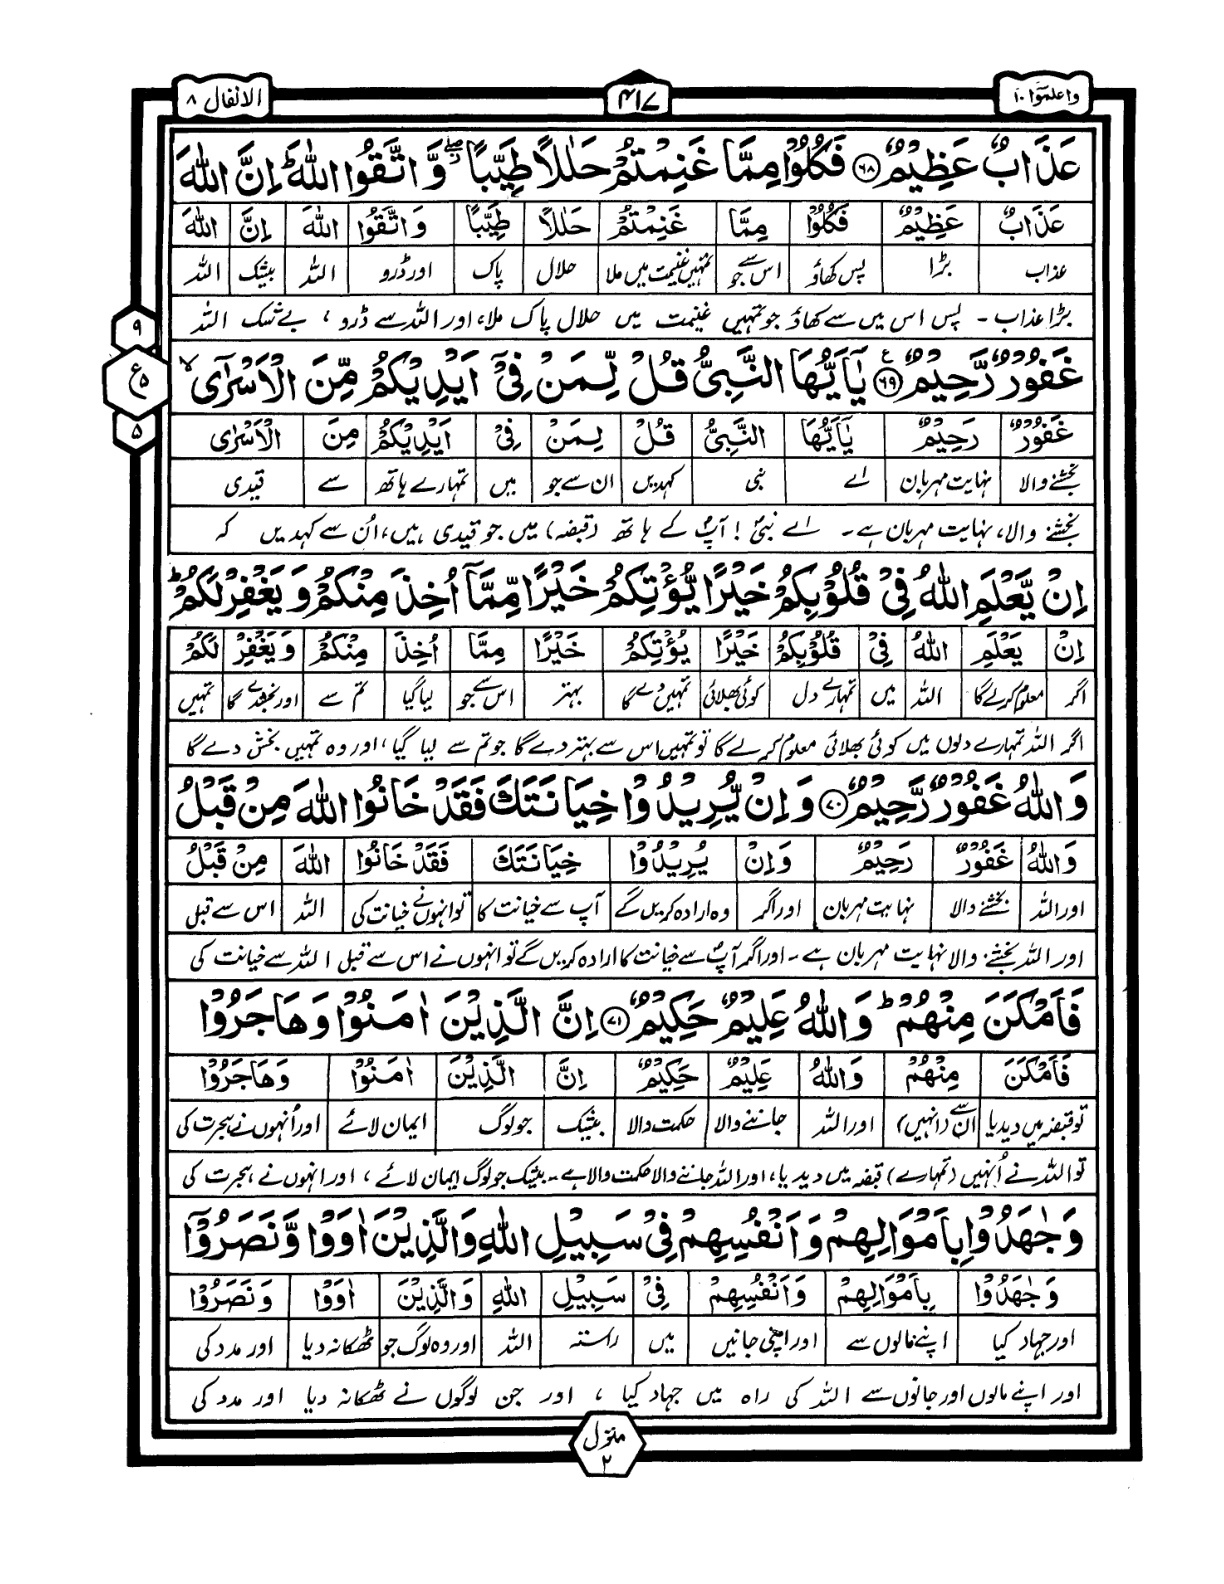 واعلموٓا ١٠
٤١٧
الانفال ٨
عَذَابٌ عَظِیْمٌ ﴿۶۸﴾ فَكُلُوْا مِمَّا غَنِمْتُمْ حَلٰلًا طَیِّبًا ۖ٘ وَّ اتَّقُوا اللّٰهَ ؕ اِنَّ اللّٰهَ
عَذَابٌ عَظِیْمٌ فَكُلُوْا مِمَّا غَنِمْتُمْ حَلٰلًا طَیِّبًا وَ اتَّقُوا اللّٰهَ اِنَّ اللّٰهَ
عذاب بڑا پس کھاؤ اس سے جو تمہیں غنیمت میں ملا حلال پاک اور ڈرو اللہ بیشک اللہ
بڑا عذاب ۔ پس اس میں سے کھاؤ جو تمہیں غنیمت میں حلال پاک ملا، اور اللہ سے ڈرو ، بے شک اللہ
٩
ع ۵
۵
غَفُوْرٌ رَّحِیْمٌ ﴿۶۹﴾ یٰۤاَیُّهَا النَّبِیُّ قُلْ لِّمَنْ فِیْۤ اَیْدِیْكُمْ مِّنَ الْاَسْرٰۤی ۙ
غَفُوْرٌ رَحِیْمٌ یٰۤاَیُّهَا النَّبِیُّ قُلْ لِمَنْ فِیْۤ اَیْدِیْكُمْ مِنَ الْاَسْرٰۤی
بخشنے والا نہایت مہربان اے نبی کہدیں ان سے جو میں تمہارے ہاتھ سے قیدی
بخشنے والا، نہایت مہربان ہے ۔ اے نبیؐ ! آپؐ کے ہاتھ (قبضہ) میں جو قیدی ہیں، اُن سے کہدیں کہ
اِنْ یَّعْلَمِ اللّٰهُ فِیْ قُلُوْبِكُمْ خَیْرًا یُّؤْتِكُمْ خَیْرًا مِّمَّاۤ اُخِذَ مِنْكُمْ وَ یَغْفِرْ لَكُمْ ؕ
اِنْ یَعْلَمِ اللّٰهُ فِیْ قُلُوْبِكُمْ خَیْرًا یُؤْتِكُمْ خَیْرًا مِمَّا اُخِذَ مِنْكُمْ وَ یَغْفِرْ لَكُمْ
اگر معلوم کرلے گا اللہ میں تمہارے دل کوئی بھلائی تمہیں دے گا بہتر اس سے جو لیا گیا تم سے اور بخشدے گا تمہیں
اگر اللہ تمہارے دلوں میں کوئی بھلائی معلوم کرلے گا تو تمہیں اس سے بہتر دے گا جو تم سے لیا گیا، اور وہ تمہیں بخش دے گا
وَ اللّٰهُ غَفُوْرٌ رَّحِیْمٌ ﴿۷۰﴾ وَ اِنْ یُّرِیْدُوْا خِیَانَتَكَ فَقَدْ خَانُوا اللّٰهَ مِنْ قَبْلُ
وَ اللّٰهُ غَفُوْرٌ رَحِیْمٌ وَ اِنْ یُرِیْدُوْا خِیَانَتَكَ فَقَدْ خَانُوا اللّٰهَ مِنْ قَبْلُ
اور اللہ بخشنے والا نہایت مہربان اور اگر وہ ارادہ کریں گے آپ سے خیانت کا تو انہوں نے خیانت کی اللہ اس سے قبل
اور اللہ بخشنے والا نہایت مہربان ہے ۔ اور اگر آپؐ سے خیانت کا ارادہ کریں گے تو انہوں نے اس سے قبل اللہ سے خیانت کی
فَاَمْكَنَ مِنْهُمْ ؕ وَ اللّٰهُ عَلِیْمٌ حَكِیْمٌ ﴿۷۱﴾ اِنَّ الَّذِیْنَ اٰمَنُوْا وَ هَاجَرُوْا
فَاَمْكَنَ مِنْهُمْ وَ اللّٰهُ عَلِیْمٌ حَكِیْمٌ اِنَّ الَّذِیْنَ اٰمَنُوْا وَ هَاجَرُوْا
تو قبضہ میں دیدیا ان سے (انہیں) اور اللہ جاننے والا حکمت والا بیشک جو لوگ ایمان لائے اور اُنہوں نے ہجرت کی
تو اللہ نے اُنہیں (تمہارے) قبضہ میں دیدیا، اور اللہ جاننے والا حکمت والا ہے ۔ بیشک جو لوگ ایمان لائے ، اور انہوں نے ہجرت کی
وَ جٰهَدُوْا بِاَمْوَالِهِمْ وَ اَنْفُسِهِمْ فِیْ سَبِیْلِ اللّٰهِ وَ الَّذِیْنَ اٰوَوْا وَّ نَصَرُوْۤا
وَ جٰهَدُوْا بِاَمْوَالِهِمْ وَ اَنْفُسِهِمْ فِیْ سَبِیْلِ اللّٰهِ وَ الَّذِیْنَ اٰوَوْا وَ نَصَرُوْا
اور جہاد کیا اپنے مالوں سے اور اپنی جانیں میں راستہ اللہ اور وہ لوگ جو ٹھکانہ دیا اور مدد کی
اور اپنے مالوں اور جانوں سے اللہ کی راہ میں جہاد کیا ، اور جن لوگوں نے ٹھکانہ دیا اور مدد کی
منزل
٢